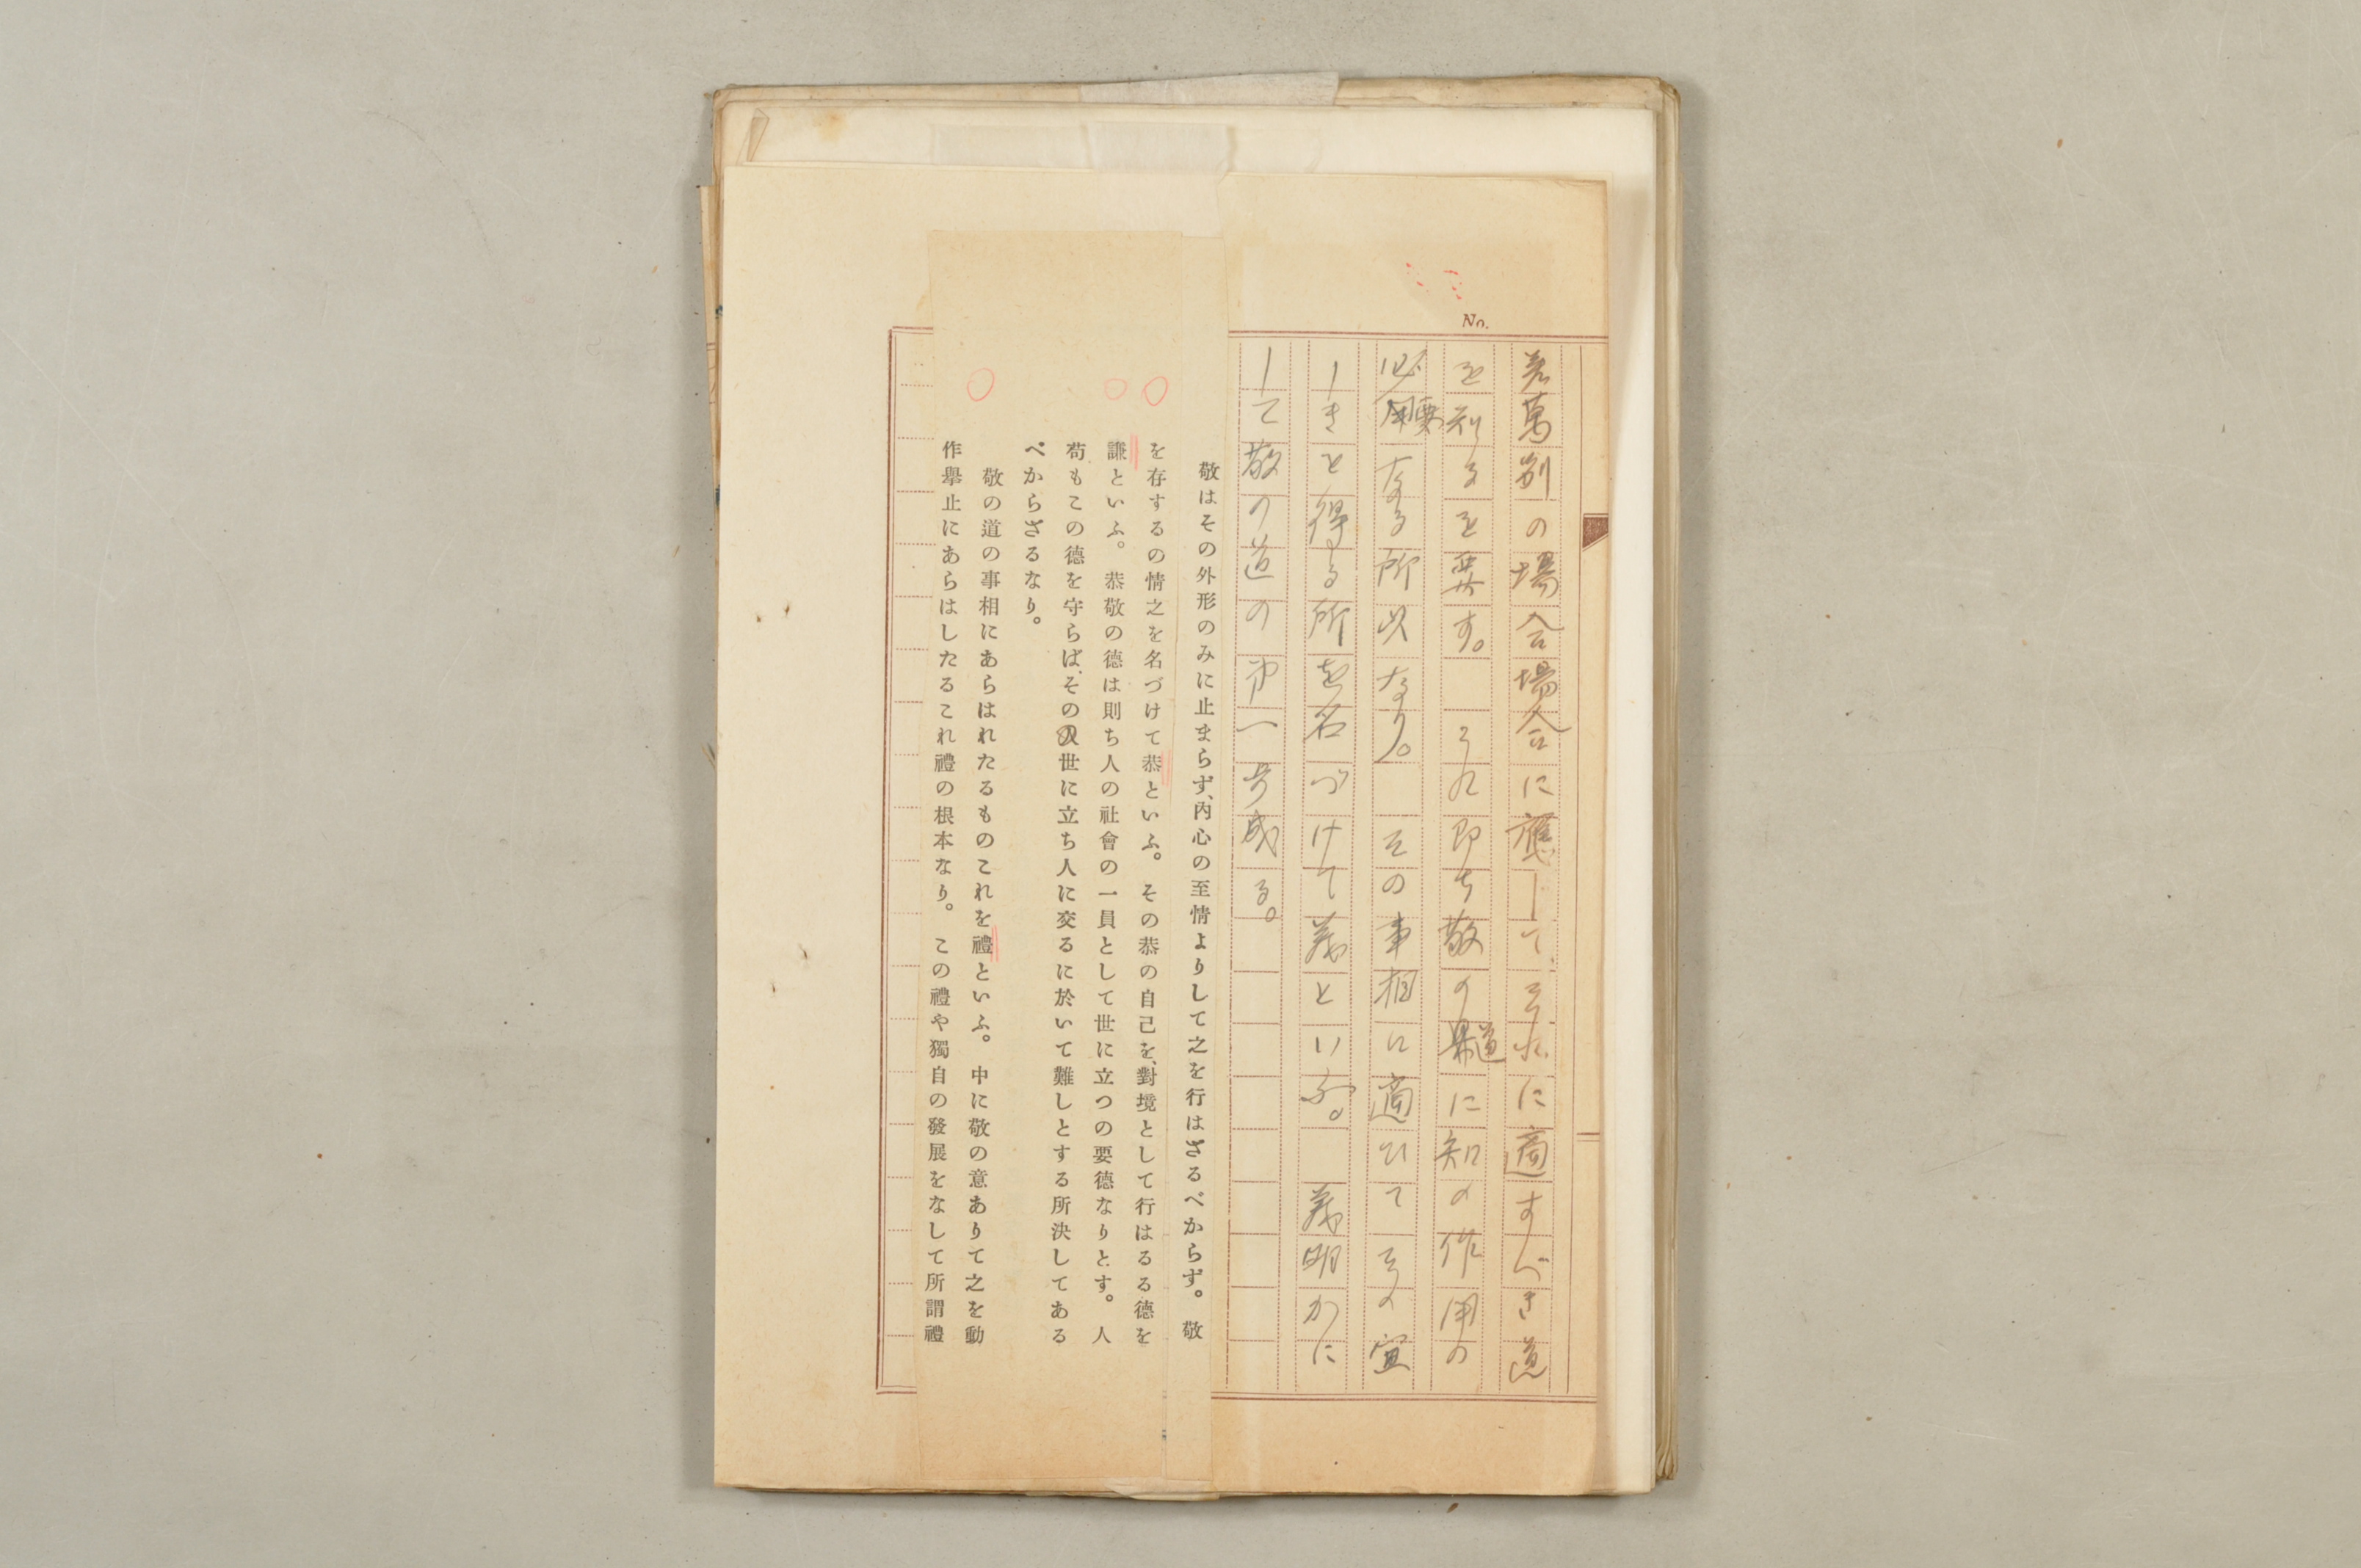 No.
差萬別の場合場合に應じて、それに適すべき道
を判るを要す。 これ即ち敬の道に知の作用の
必要なる所以なり。 その事相に適ひてその宜
しきを得る所を名づけて義といふ。 義明かに
して敬の道の第一歩成る。
敬はその外形のみに止まらず、内心の至情よりして之を行はざるべからず。 敬
を存するの情之を名づけて恭といふ。 その恭の自己を、對境として行はるる德を
謙といふ。 恭敬の德は則ち人の社會の一員として世に立つの要德なりとす。 人
苟もこの德を守らば、その世に立ち人に交るに於いて難しとする所決してある
べからざるなり。
敬の道の事相にあらはれたるものこれを禮といふ。 中に敬の意ありて之を動
作擧止にあらはしたるこれ禮の根本なり。 この禮や獨自の發展をなして所謂禮